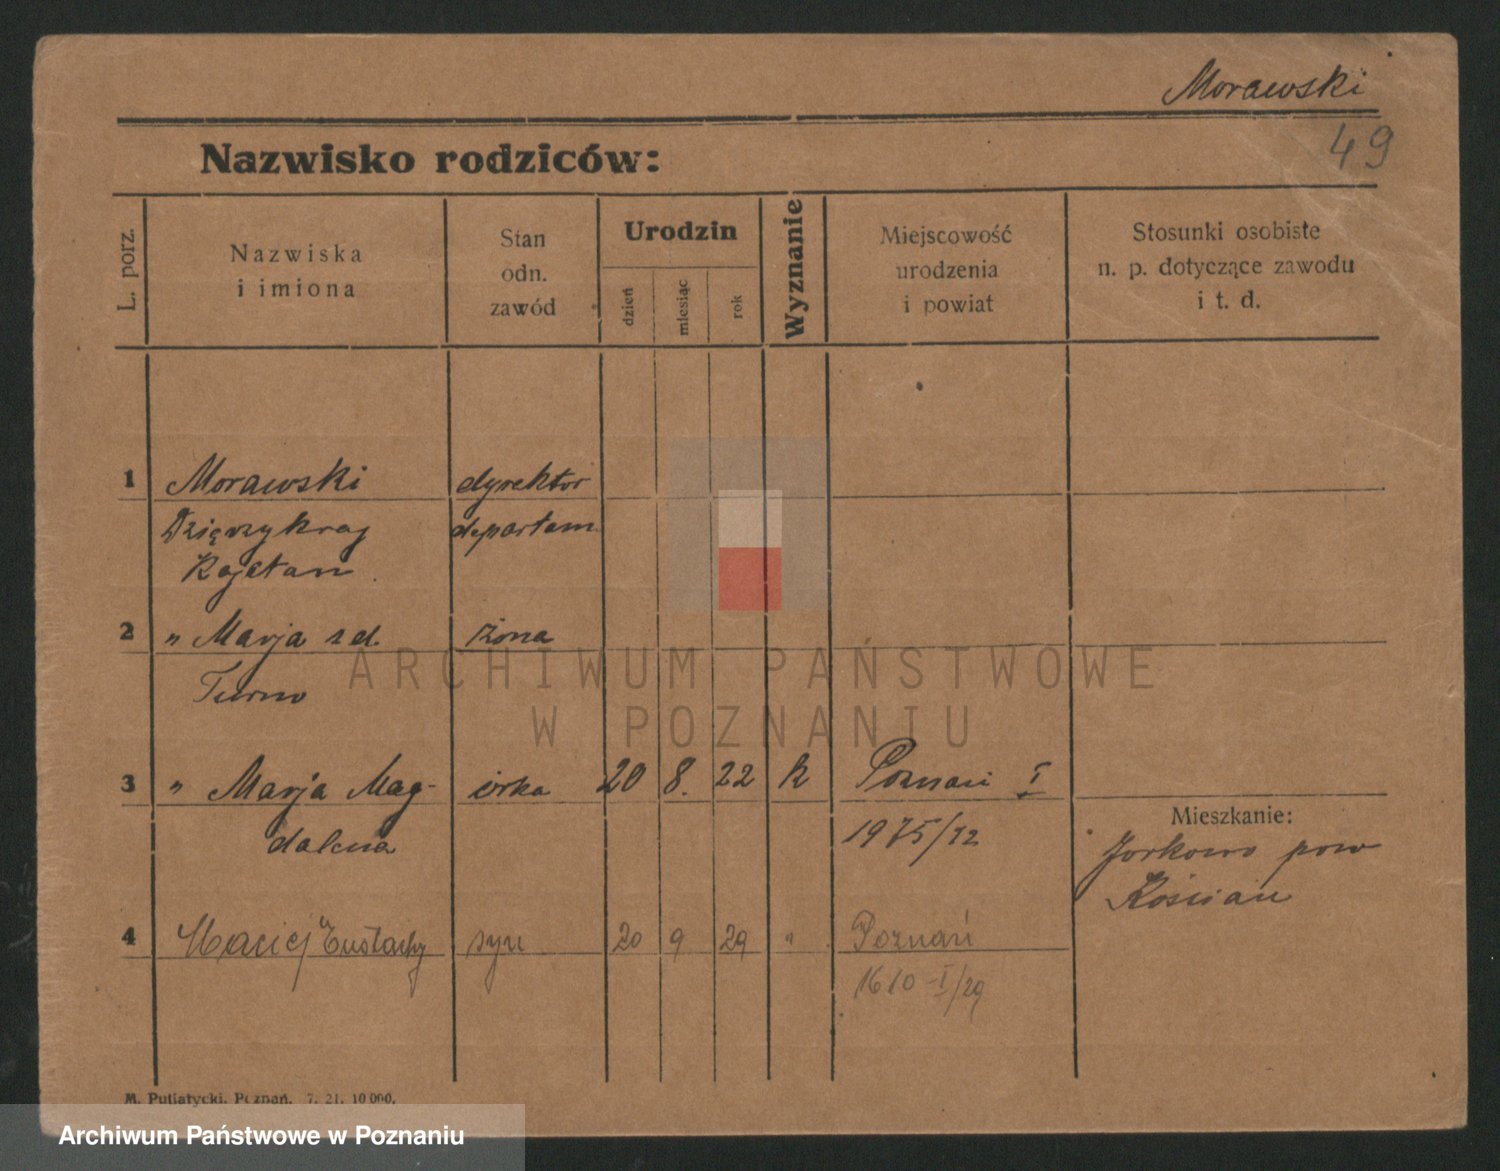 Morawski
49
Nazwisko rodziców:
L. porz.
Nazwiska
i imiona
Stan
odn.
zawód
Urodzin
dzień
miesiąc
rok
Wyznanie
Miejscowość
urodzenia
i powiat
Stosunki osobiste
n. p. dotyczące zawodu
i t. d.
1 Morawski dyrektor
Dzierżykraj departam.
Kajetan
2 " Marja zd. żona
Turno
3 " Marja Mag- córka 20 8. 22 k Poznań I
dalena 1975/22
Mieszkanie:
Jurkowo pow
Kościan
4 Maciej Eustachy syn 20 9 29 " Poznań
1610-I/29
M. Putiatycki, Poznań. 7. 21. 10 000.
ARCHIWUM PAŃSTWOWE
W POZNANIU
Archiwum Państwowe w Poznaniu